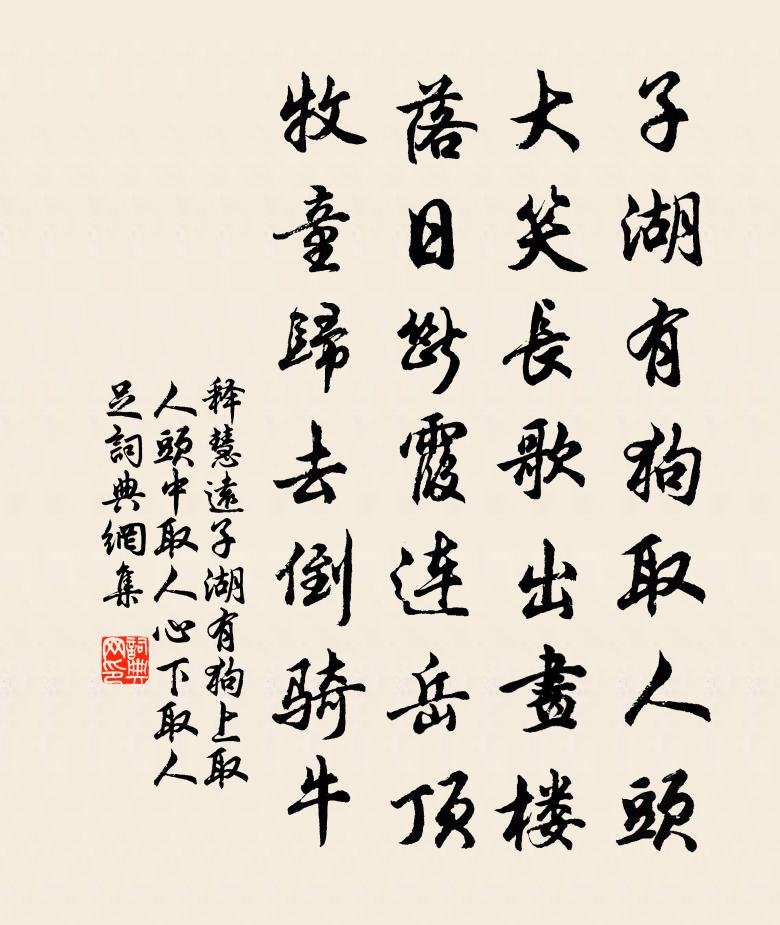 子湖有狗取人頭
大笑長歌出畫楼
落日断霞連岳頂
牧童歸去倒騎牛
释慧遠子湖有狗上取
人頭中取人心下取人
足詞典網集
詞典网印